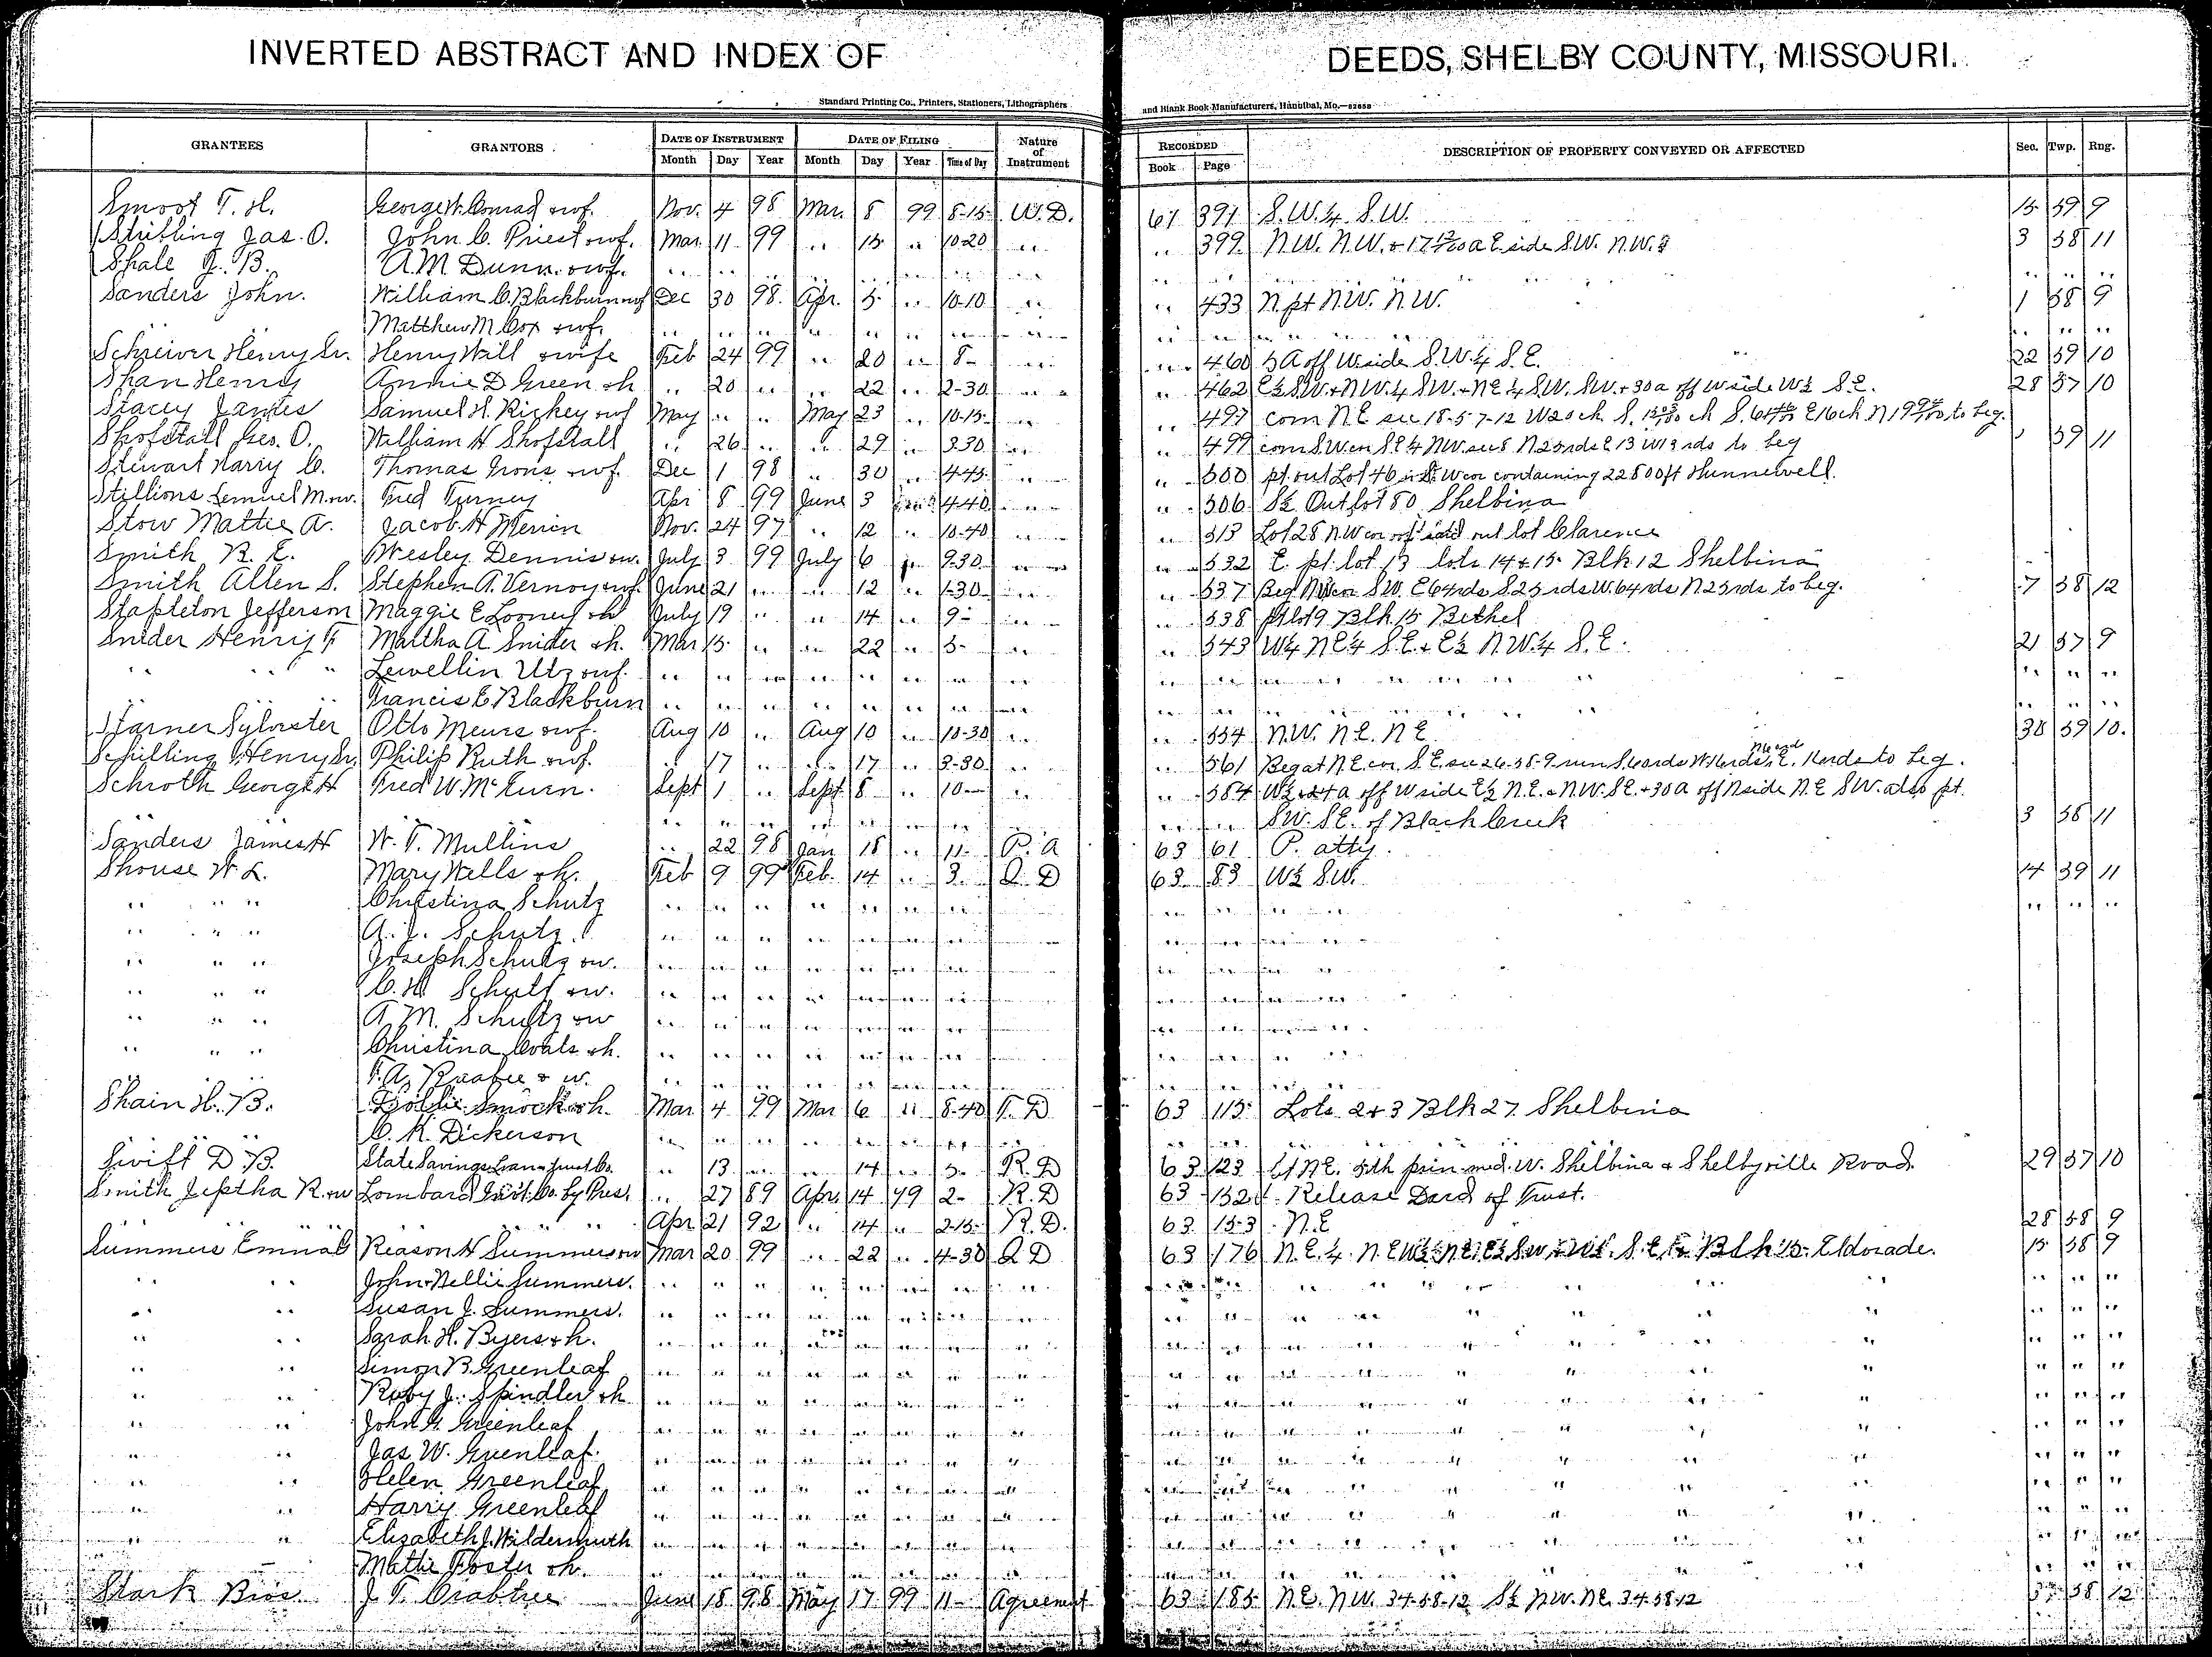 INVERTED ABSTRACT AND INDEX OF DEEDS, SHELBY COUNTY, MISSOURI.
Standard Printing Co., Printers, Stationers, Lithographers and Blank Book Manufacturers, Hannibal, Mo.
GRANTEES GRANTORS DATE OF INSTRUMENT DATE OF FILING Nature of Instrument RECORDED DESCRIPTION OF PROPERTY CONVEYED OR AFFECTED Sec. Twp. Rng.
Month Day Year Month Day Year Time of Day Book Page
Smoot T. H. George W. Conrad owf. Nov. 4 98 Mar. 8 99 8-15 W.D. 61 391 S.W.4 S.W. 15 59 9
Stribling Jas. O. John C. Priest owf. Mar. 11 99 " 15 " 10-20 " " 399 N.W. N.W. + a E side S.W. N.W. 3 58 11
Shale J. B. A.M. Dunn owf. " " " " " " " " " " " " "
Sanders John. William C. Blackburn owf Dec 30 98 Apr. 5 " 10-10 " " 433 N. pt N.W. N.W. 1 58 9
Matthew M Cox owf. " " " " " " " " " " " " "
Schriever Henry Sr. Henry Will owife Feb 24 99 " 20 " 8- " " 460 5 A off W side S.W.4 S.E. 22 59 10
Shan Henry Annie D Green oh " 20 " " 22 " 2-30 " " 462 E½ S.W. + N.W.4 S.W. + N.E.4 S.W. S.W. + 30a off W side W½ S.E. 28 57 10
Stacey James Samuel H. Rickey owf May " " May 23 " 10-15 " " 497 com N.E. sec 18-57-12 W 20 ch S. ch S. E 16 ch N to beg.
Shofstall Geo. O. William H Shofstall " 26 " " 29 " 3 30 " " 499 com S.W cor S.E 4 N.W. sec 8 N 25 rds E 13 W 13 rds to beg 59 11
Stewart Harry C. Thomas Irons owf. Dec 1 98 " 30 " 4-45 " " 500 pt. out Lot 46 in S.W cor containing 22500 ft Hunnewell.
Stillions Lemuel M. ow. Fred Turney Apr 8 99 June 3 " 4-40 " " 506 S½ Outlot 80 Shelbina
Stow Mattie A. Jacob H Merrin Nov. 24 97 " 12 " 10-40 " " 513 Lot 28 N W cor out lot Clarence
Smith R. E. Wesley Dennis ow. July 3 99 July 6 " 9 30 " " 532 E. pt. lot 13 lots 14 + 15 Blk 12 Shelbina
Smith Allen S. Stephen A. Vernoy owf. June 21 " " 12 " 1-30 " " 537 Beg N.W cor S.W. E 64 rds S.25 rds W. 64 rds N.25 rds to beg. 7 58 12
Stapleton Jefferson Maggie E Looney oh July 19 " " 14 " 9- " " 538 pt lot 9 Blk 15 Bethel
Snider Henry F Martha A. Snider oh. Mar 15 " " 22 " 5- " " 543 W½ N.E.4 S.E. + E½ N.W.4 S.E. 21 57 9
" " " Lewellin Utz owf. " " " " " " " " " " " " "
Francis E Blackburn " " " " " " " " " " " " "
Starner Sylvester Otto Meurs owf. Aug 10 " Aug 10 " 10-30 " " 554 N.W. N.E. N.E 30 59 10.
Schilling Henry Sr. Philip Ruth owf. " 17 " " 17 " 3-30 " " 561 Beg at N.E. cor. S.E. sec 26-58-9 run S 40 rds W 14 rds N 40 rds E. 14 rds to beg.
Schroth George H Fred W. McEuen. Sept 1 " Sept 8 " 10- " " 584 W½ a off W side E½ N.E. + N.W. S.E. + 30 a off N side N.E S.W. also pt.
" " " " " " " " " " S.W. S.E. of Black Creek 3 58 11
Sanders James H W. T. Mullins " 22 98 Jan 18 " 11- P. A 63 61 P. atty.
Shouse W. L. Mary Wells oh. Feb 9 99 Feb. 14 " 3. Q. D 63 83 W½ S.W. 14 59 11
" " " Christina Schutz " " " " " " " " " " " " "
" " " A. J. Schutz " " " " " " " " " "
" " " Joseph Schutz ow. " " " " " " " " " "
" " " C. H Schutz ow. " " " " " " " " " "
" " " A. M. Schutz ow " " " " " " " " " "
" " " Christina Coats oh. " " " " " " " " " "
F. A. Raabee o w. " " " " " " " " " "
Shain H. B. Dollie Smock oh. Mar 4 99 Mar 6 " 8-40 T. D 63 115 Lots 2 + 3 Blk 27 Shelbina
" " C. R. Dickerson " " " " " " " " " "
Swift D. B. State Savings Loan + Trust Co. " 13 " " 14 " 5- R. D 63 123 N.E. 5th prin med. W. Shelbina + Shelbyville Road. 29 57 10
Smith Jeptha R. ow Lombard Invt. Co. by Pres. " 27 89 Apr. 14 99 2- R. D 63 152 Release Deed of Trust.
" " " " Apr 21 92 " 14 " 2-15 R. D. 63 153 N.E 28 58 9
Summers Emma Reason H Summers ow Mar 20 99 " 22 " 4-30 Q D 63 176 N.E.4 N.E Blk 15 Eldorade. 15 58 9
" " John + Nellie Summers. " " " " " " " " " " " " "
" " Susan J. Summers. " " " " " " " " " " " " "
" " Sarah H. Byers oh. " " " " " " " " " " " " "
" " Simon B. Greenleaf " " " " " " " " " " " " "
" " Ruby J. Spindler oh " " " " " " " " " " " " "
" " John H Greenleaf " " " " " " " " " " " " "
" " Jas. W. Greenleaf. " " " " " " " " " " " " "
" " Helen Greenleaf " " " " " " " " " " " " "
" " Harry Greenleaf " " " " " " " " " " " " "
" " Elizabeth J. Wildersmuth " " " " " " " " " " " " "
Mattie Foster oh. " " " " " " " " " " " " "
Stark Bros. J. T. Crabtree June 18 98 May 17 99 11- Agreement 63 185 N.E. N.W. 34-58-12 S½ N.W. N.E. 34 58 12 58 12